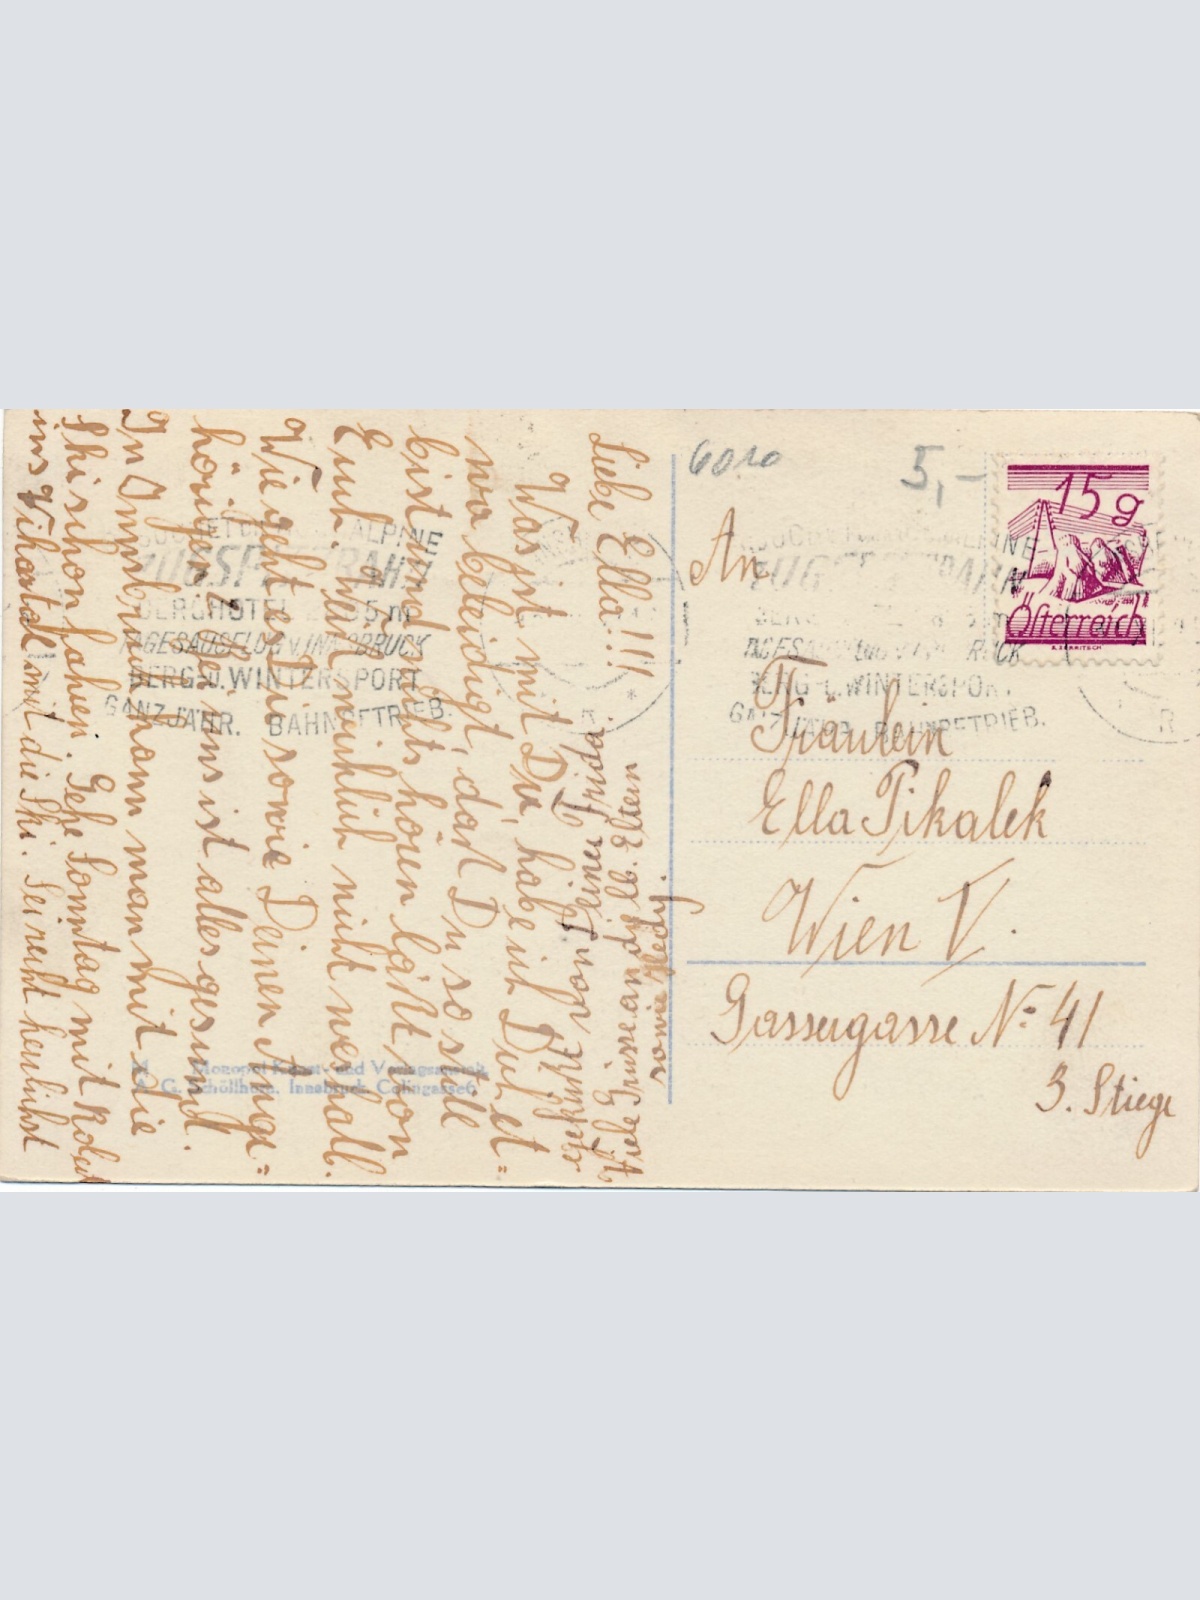 Liebe Ella!!!
Was ist mit Dir, habe ich Dich et=
wa beleidigt, daß Du so still
bist und nichts hören läßt von
Euch. Weiß wirklich nicht weshalb.
Wie geht es Dir sowie Deinen Ange=
hörigen? Bei uns ist alles gesund.
In Innsbruck kann man mit die
Ski schon fahren. Gehe Sonntag mit
ins Vikartal mit die Ski. Sei recht herzlichst
von Deiner Frida.
Viele Grüsse an die lb. Eltern
sowie Hedy.
6020
5,-
15 g
Österreich
An
Fräulein
Ella Pikalek
Wien V.
Gassergasse No 41
3. Stiege
ALPINE
ZUGSPITZBAHN
BERGHOTEL 2805 m
TAGESAUSFLUG v. INNSBRUCK
BERG- U. WINTERSPORT
GANZJÄHR. BAHNBETRIEB.
Monopol Kunst- und Verlagsanstalt
G. Schöllhorn, Innsbruck, Colingasse 6.